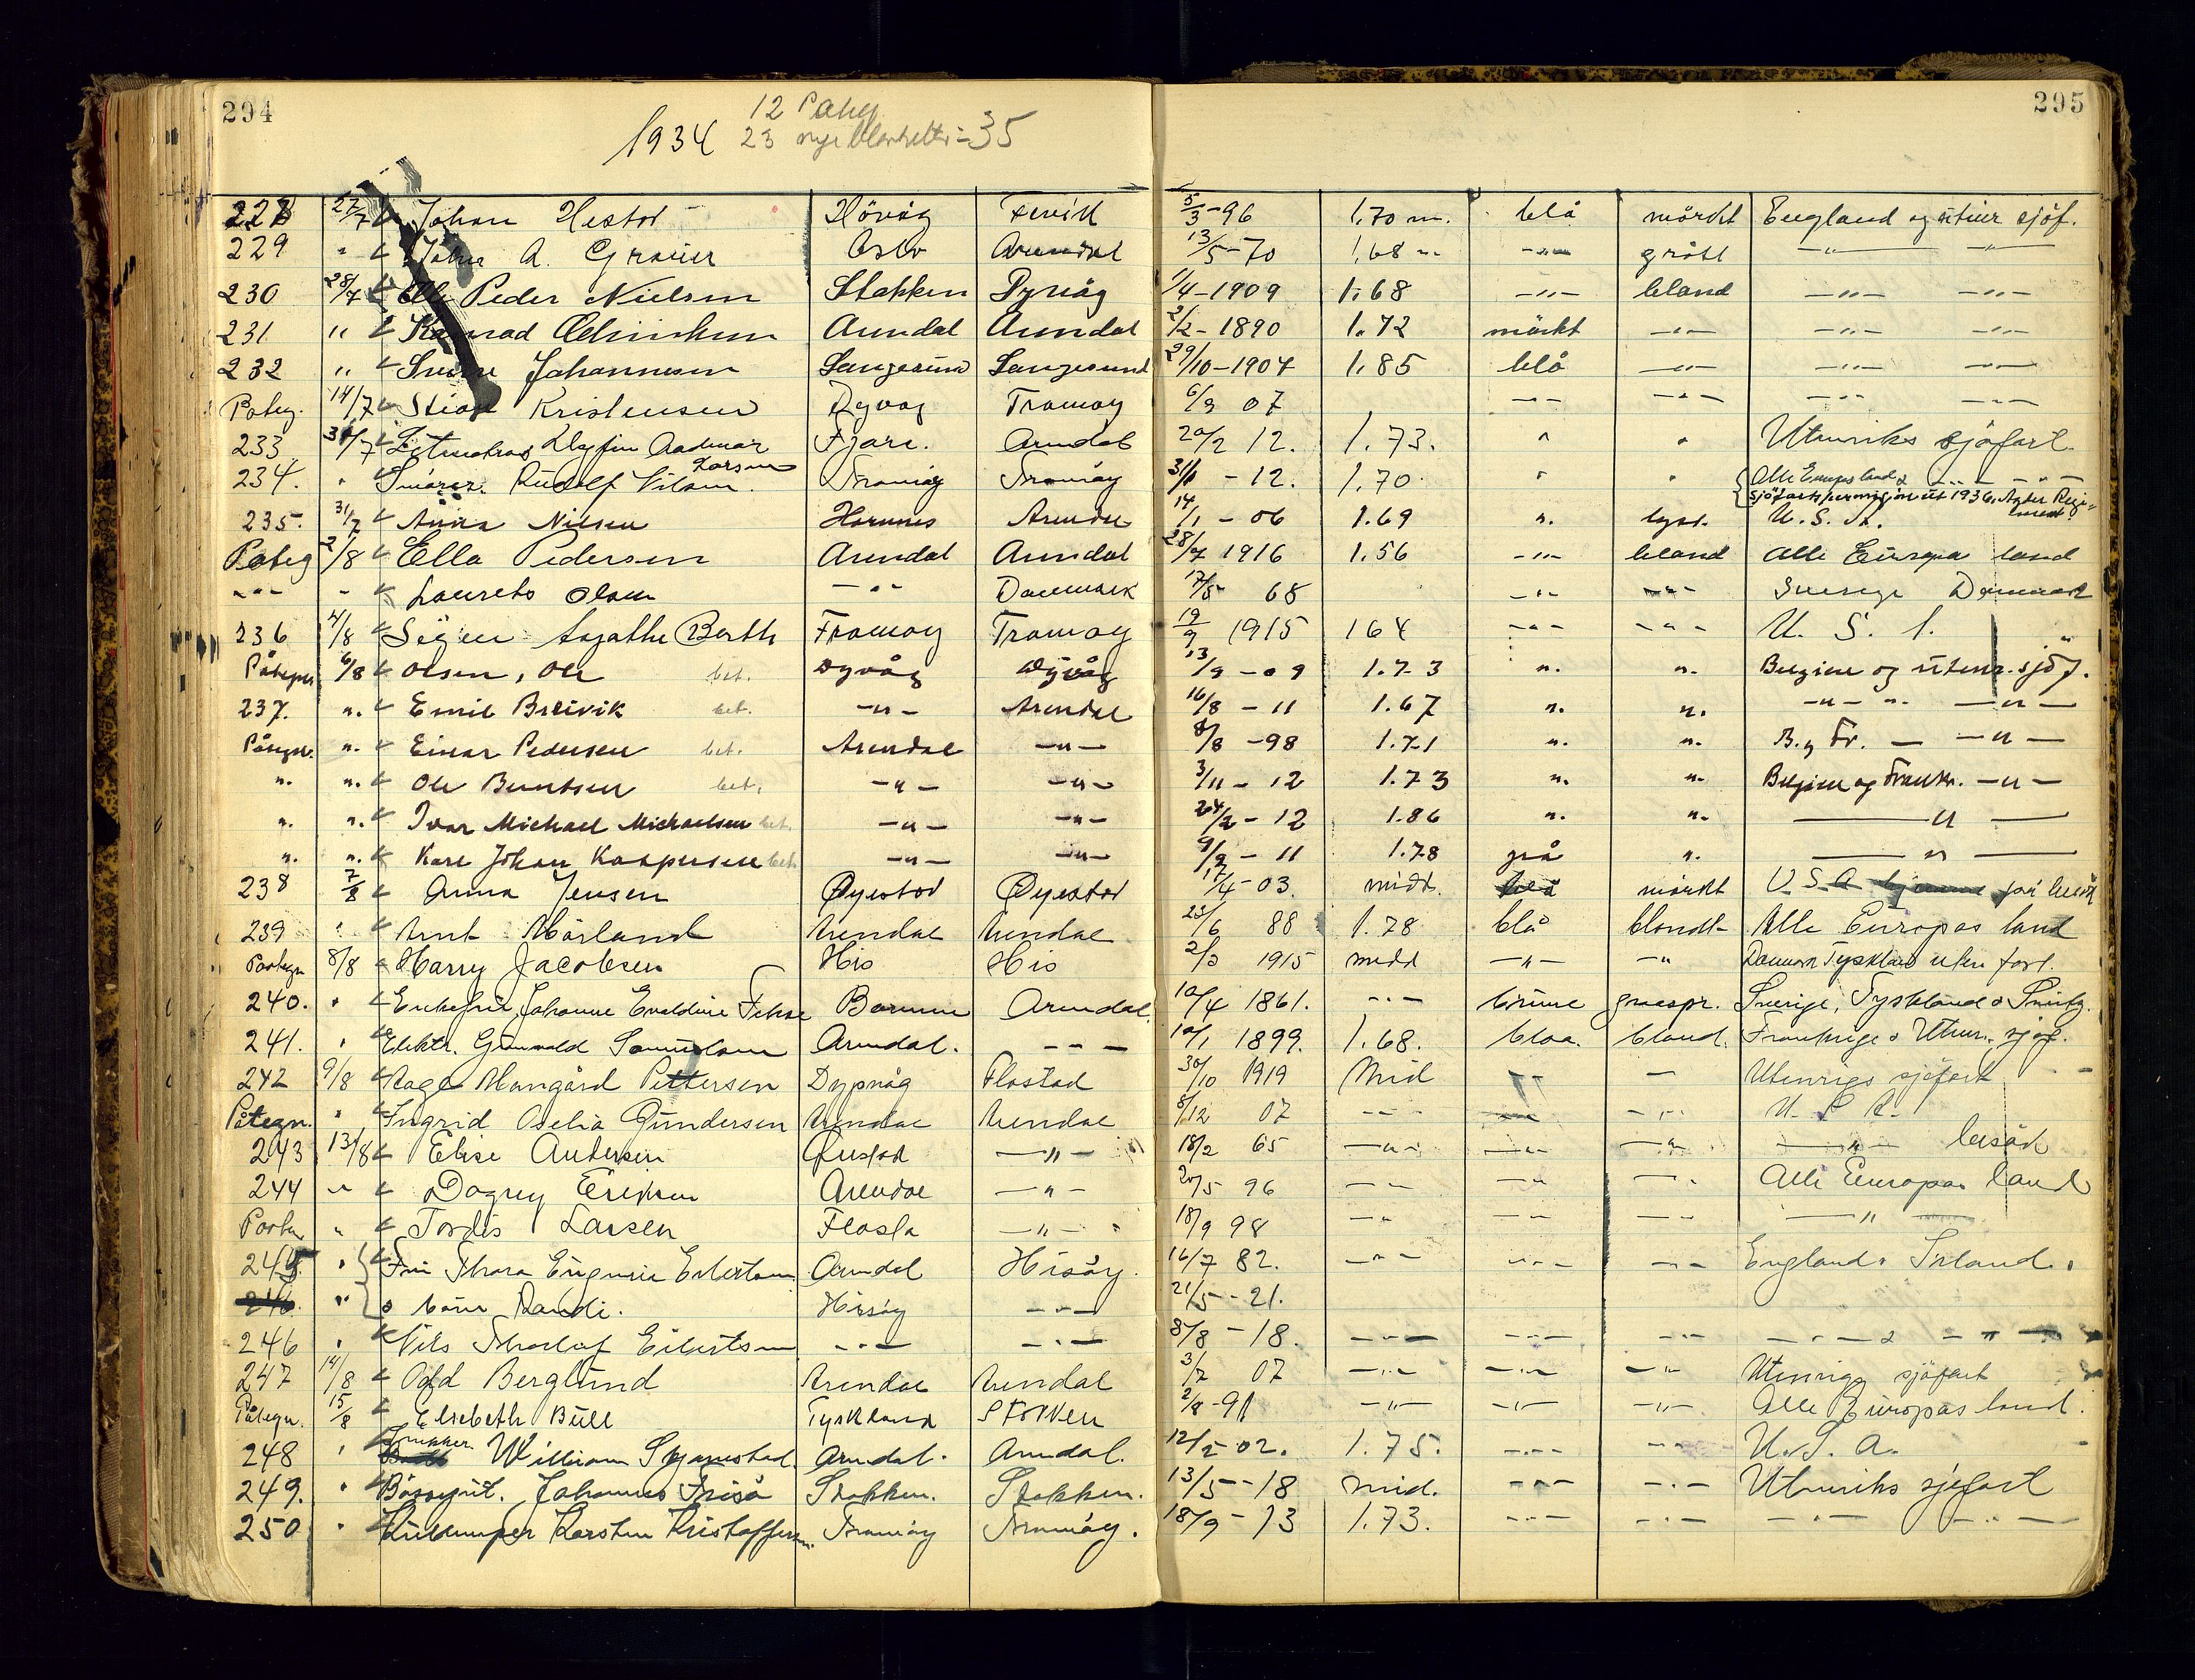 294
295
12 Påteg
1934 23 nye blanketter = 35
228 27/7 Johan Hestod Hövåg Fevik 5/3-96 1.70 m. blå mörkt England og utenr sjöf.
229 " Johs A. Grouier Oslo Arendal 13/5-70 1,68 " -"- grått -"- -"-
230 28/7 Peder Nielsen Stokken Dyvåg 1/4-1909 1.68 -"- blond -"- -"-
231 " Arendal Arendal 2/2-1890 1.72 mörkt -"- -"- -"-
232 " Johannesen Langesund Langesund 29/10-1904 1.85 blå -"- -"- -"-
Poteg. 14/7 Kristensen Dyvåg Tromøy 6/9 07 -"- -"- -"- -"-
233 Dagfin Aadmar Larsen Fjære. Arendal 20/2 12. 1.73. " " Utenriks sjöfart
234. " Smører. Rudolf Nilsen. Tromöy Tromöy - 12. 1.70 " " Alle Europas land & -"- -"-
sjöfartspermisjon ut 1936. Agder Regiment
235. 31/7 Anna Nilsen Hornnes Arendal 14/1 - 06 1.69 ". lyst. U.S.A.
Poteg 2/8 Ella Pedersen Arendal Arendal 28/7 1916 1.56 -"- blond Alle Europa land
-"- - Laurets Olsen -"- Danmark 17/5 68 -"- -"- Sverige Danmark
236 4/8 Signe Agathe Berth Tromøy Tromøy 19/9 1915 164 -"- -"- U. S. A.
Påtegn 6/8 Olsen, Ole bet. Dyvåg Dyvåg 13/9 - 09 1.73 ". ". Belgien og utenr. sjöf.
237. ". Emil Breivik bet. -"- Arendal 16/8 - 11 1.67 ". ". -"- ". -"-
Påtegn. ". Einar Pedersen bet. Arendal -"- 8/8 - 98 1.71 ". ". B. og Fr. - -"-
". ". Ole Berntsen bet. -"- -"- 3/11 - 12 1.73 ". ". Belgien og Frankr. -"-
". ". Ivar Michael Michaelsen bet. -"- -"- 24/2 - 12 1.86 ". ". -"-
". ". Kare Johan Kaspersen bet. -"- -"- 9/9 - 11 1.78 grå ". -"-
238 7/8 Anna Jensen Øyestad Øyestad 17/4-03. midd. blå mörkt U.S.A. på besök
239 " Arnt Mörland Arendal Arendal 23/6 88 1.78 blå blondt Alle Europas land
Påtegn 8/8 Harry Jacobsen His His 2/3 1915 midd -"- -" Danmark Tyskland uten fart.
240. " Enkefru Johanne Evaldine Arendal. 10/4 1861. -"- brune graaspr. Sverige, Tyskland &
241. " Elektr. Arendal. -"- 10/1 1899. 1.68. blaa. blond. Frankrige & Utenr. sjöf.
242 9/8 Aage Mangård Pettersen Dypvåg Flostad 30/10 1919 Mid -"- - Utenrigs sjöfart -
Påtegn. " Ingrid Oselia Gundersen Arendal Arendal 8/12 07 -"- -"- -"- U. S. A.
243 13/8 Elise Andersen -"- 18/2 65 -"- -"- -"- -"- besök
244 " Dagny Eriksen Arendal -"- 20/5 96 -"- -"- -"- Alle Europas land
" Tordis Larsen Flosta -"- 18/9 98 -"- -"- -"- -"-
245 " Fru Thora Eugenie Arendal Hisöy. 16/7 82. -"- -"- -"- England & Irland.
246. " & barn Randi. Hisöy -"- 21/5-21.
246 " Nils -"- -"- 8/8-18. -"- -"- -"- -"- & -"-
247 14/8 Odd Berglund Arendal Arendal 3/7 07 -"- -"- -"- Utenrigs sjöfart
Påtegn. 15/8 Elsebeth Bull Tyskland 2/8-91 -"- -"- -"- Alle Europas land.
248 " William Arendal. Arendal. 12/2-02. 1.75. -"- -"- U.S.A.
249. " Johannes Stokken. Stokken. 13/5-18 mid. -"- -"- Utenriks sjöfart
250 " Karsten Kristoffersen. Tromöy Tromöy. 18/9-13 1.73. -"- -"- -"- -"-